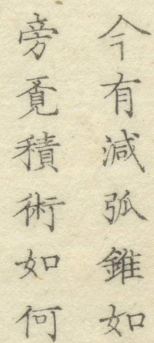 今有減弧錐如
旁覓積術如何